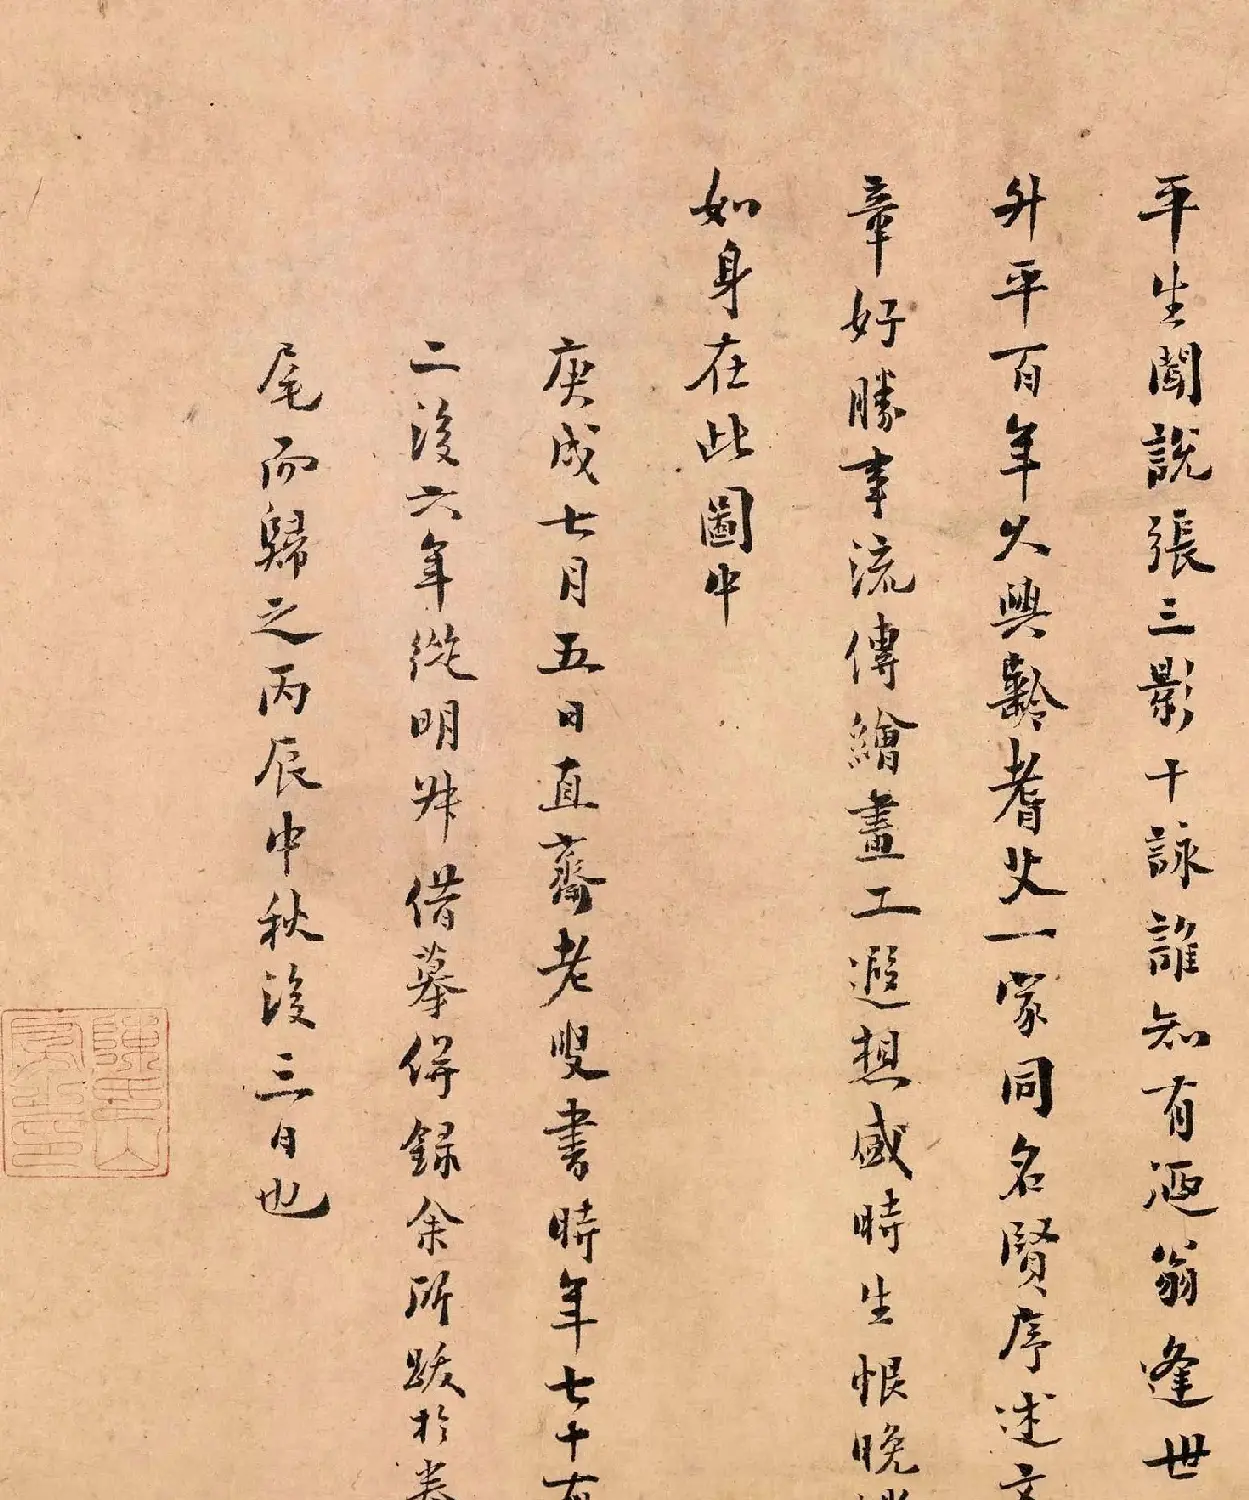 平生聞說張三影十詠誰知有迺翁逢世
升平百年久與齡耆艾一家同名賢序述文
章好勝事流傳繪畫工遐想盛時生恨晚
如身在此圖中
庚戌七月五日直齋老叟書時年七十有
二後六年從明叔借摹併錄余所跋於卷
尾而歸之丙辰中秋後三日也
陳氏山房之印